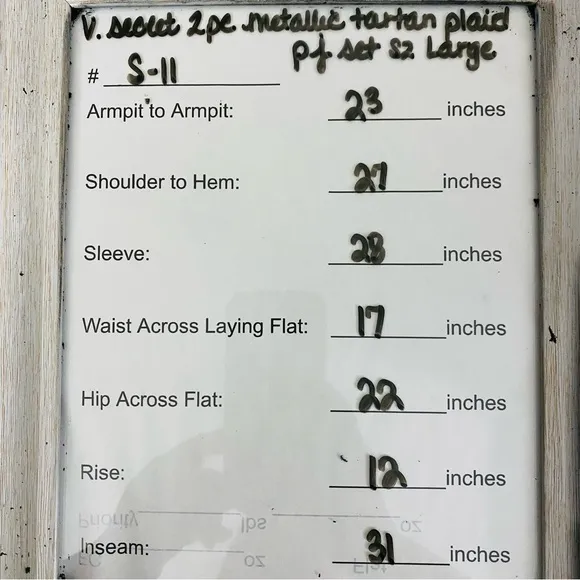 V. Secret 2pc. metallic tartan plaid
pj. set sz Large
# S-11
Armpit to Armpit: 23 inches
Shoulder to Hem: 27 inches
Sleeve: 28 inches
Waist Across Laying Flat: 17 inches
Hip Across Flat: 22 inches
Rise: 12 inches
Priority lbs oz
Inseam: 31 inches
FC oz Flat